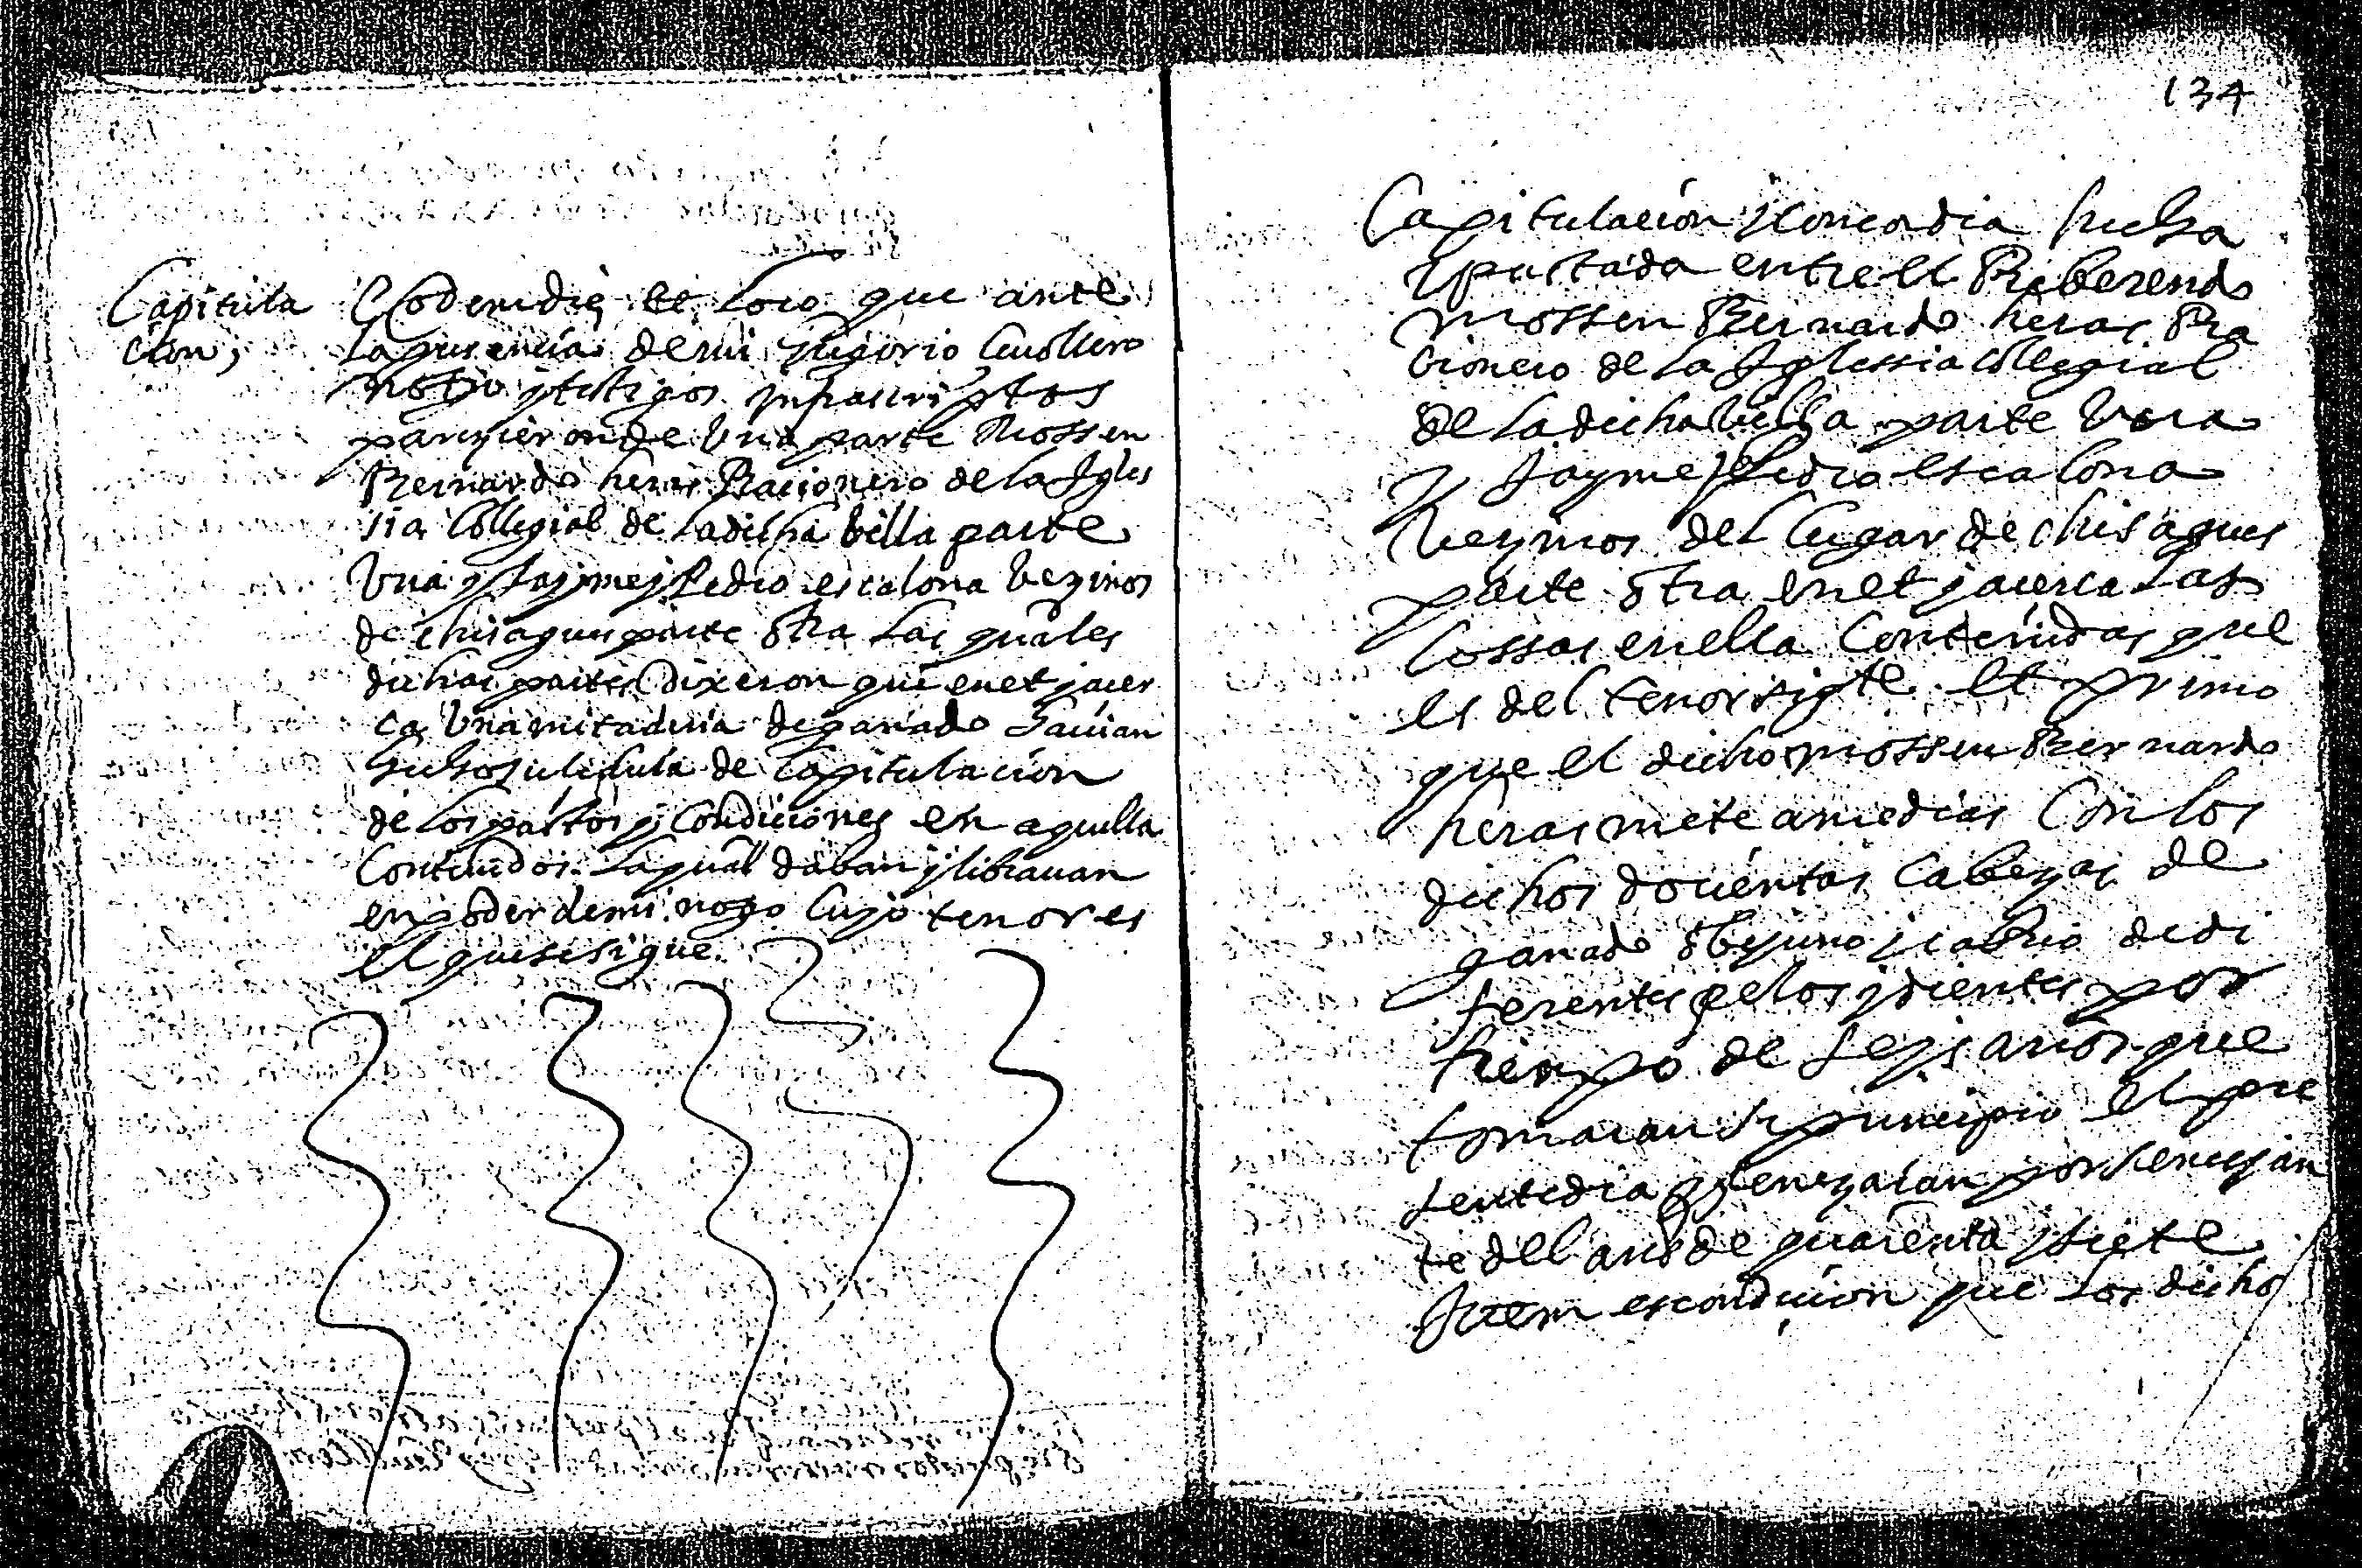 Capitula
cion,
Eodem die et loco que ante
la presencia de mi jregorio
notrio y testigos infrascriptos
parezieron de Una parte Mossen
Bernardo heras Racionero de la Igles
sia Collegial de la dicha billa parte
Una y Jayme y Pedro escalona bezinos
de chisagues parte otra las quales
dichas partes dixeron que en et y acer
ca Una mitaderia de ganado hauian
hecho su cedula de Capitulacion
de los pactos y Condiciones en aquella
Contenidos. la qual daban y librauan
en poder de mi noto Cuyo tenor es
el que se sigue.
134
Capitulacion y Concordia hecha
y pactada entre el Reberendo
mossen Bernardo heras Ra
cionero de la Iglessia Collegial
de la dicha billa parte Una
y Jayme y Pedro escalona
Vezinos del lugar de chisagues
parte otra en et y acerca las
Cossas en ella Contenidas que
es del tenor sigte. et primo
que el dicho mossen Bernardo
heras mete a medias Con los
dichos docientas Cabezas de
ganado obejuno y cabrio de di
ferentes pelos y dientes por
tiempo de seys años que
tomaran su principio el pre
sente dia y fenezaran por semejan
te del año de quarenta y siete
Item es condicion que los dichos